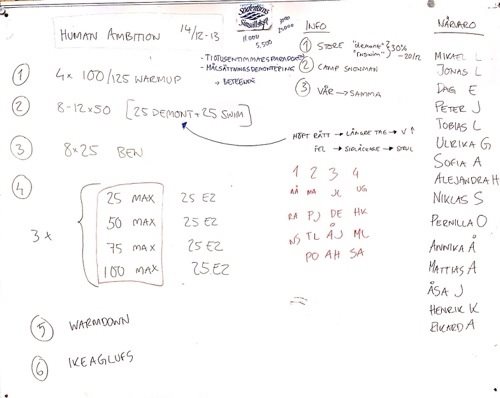 HUMAN AMBITION 14/12-13
11 000
5,500
- TIOTUSENTIMMARSPARADOXEN
- MÅLSÄTTNINGSDEMONTERING
→ BETEENDE
① 4x 100/125 WARMUP
② 8-12x50 [25 DEMONT + 25 SWIM]
③ 8x25 BEN
④ 3x
25 MAX 25 EZ
50 MAX 25 EZ
75 MAX 25 EZ
100 MAX 25 EZ
⑤ WARMDOWN
⑥ IKEAGLUFS
INFO
① STORE "demont" } 30%
-20/12
② CAMP SNOWMAN
③ VÅR → SAMMA
HÖFT RÄTT → LÄNGRE TAG → V ↑
FEL →
1 2 3 4
RÅ MA JL UG
RA PJ DE HK
NS TL ÅJ ML
PO AH SA
NÄRVARO
MIKAEL L
JONAS L
DAG E
PETER J
TOBIAS L
ULRIKA G
SOFIA A
ALEJANDRA H
NIKLAS S
PERNILLA O
ANNIKA Å
MATTIAS A
ÅSA J
HENRIK K
RIKARD A